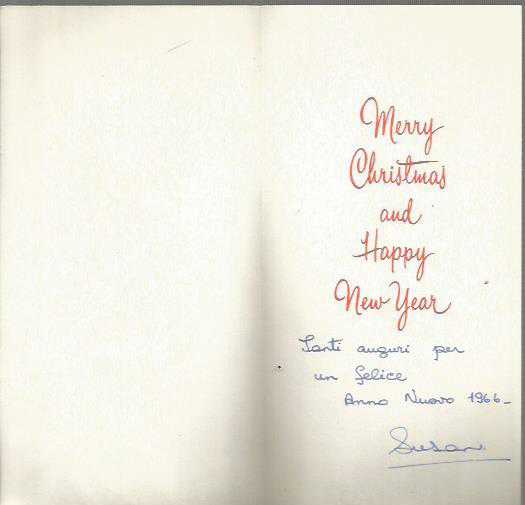 Merry
Christmas
and
Happy
New Year
Tanti auguri per
un felice
Anno Nuovo 1966_
Susan